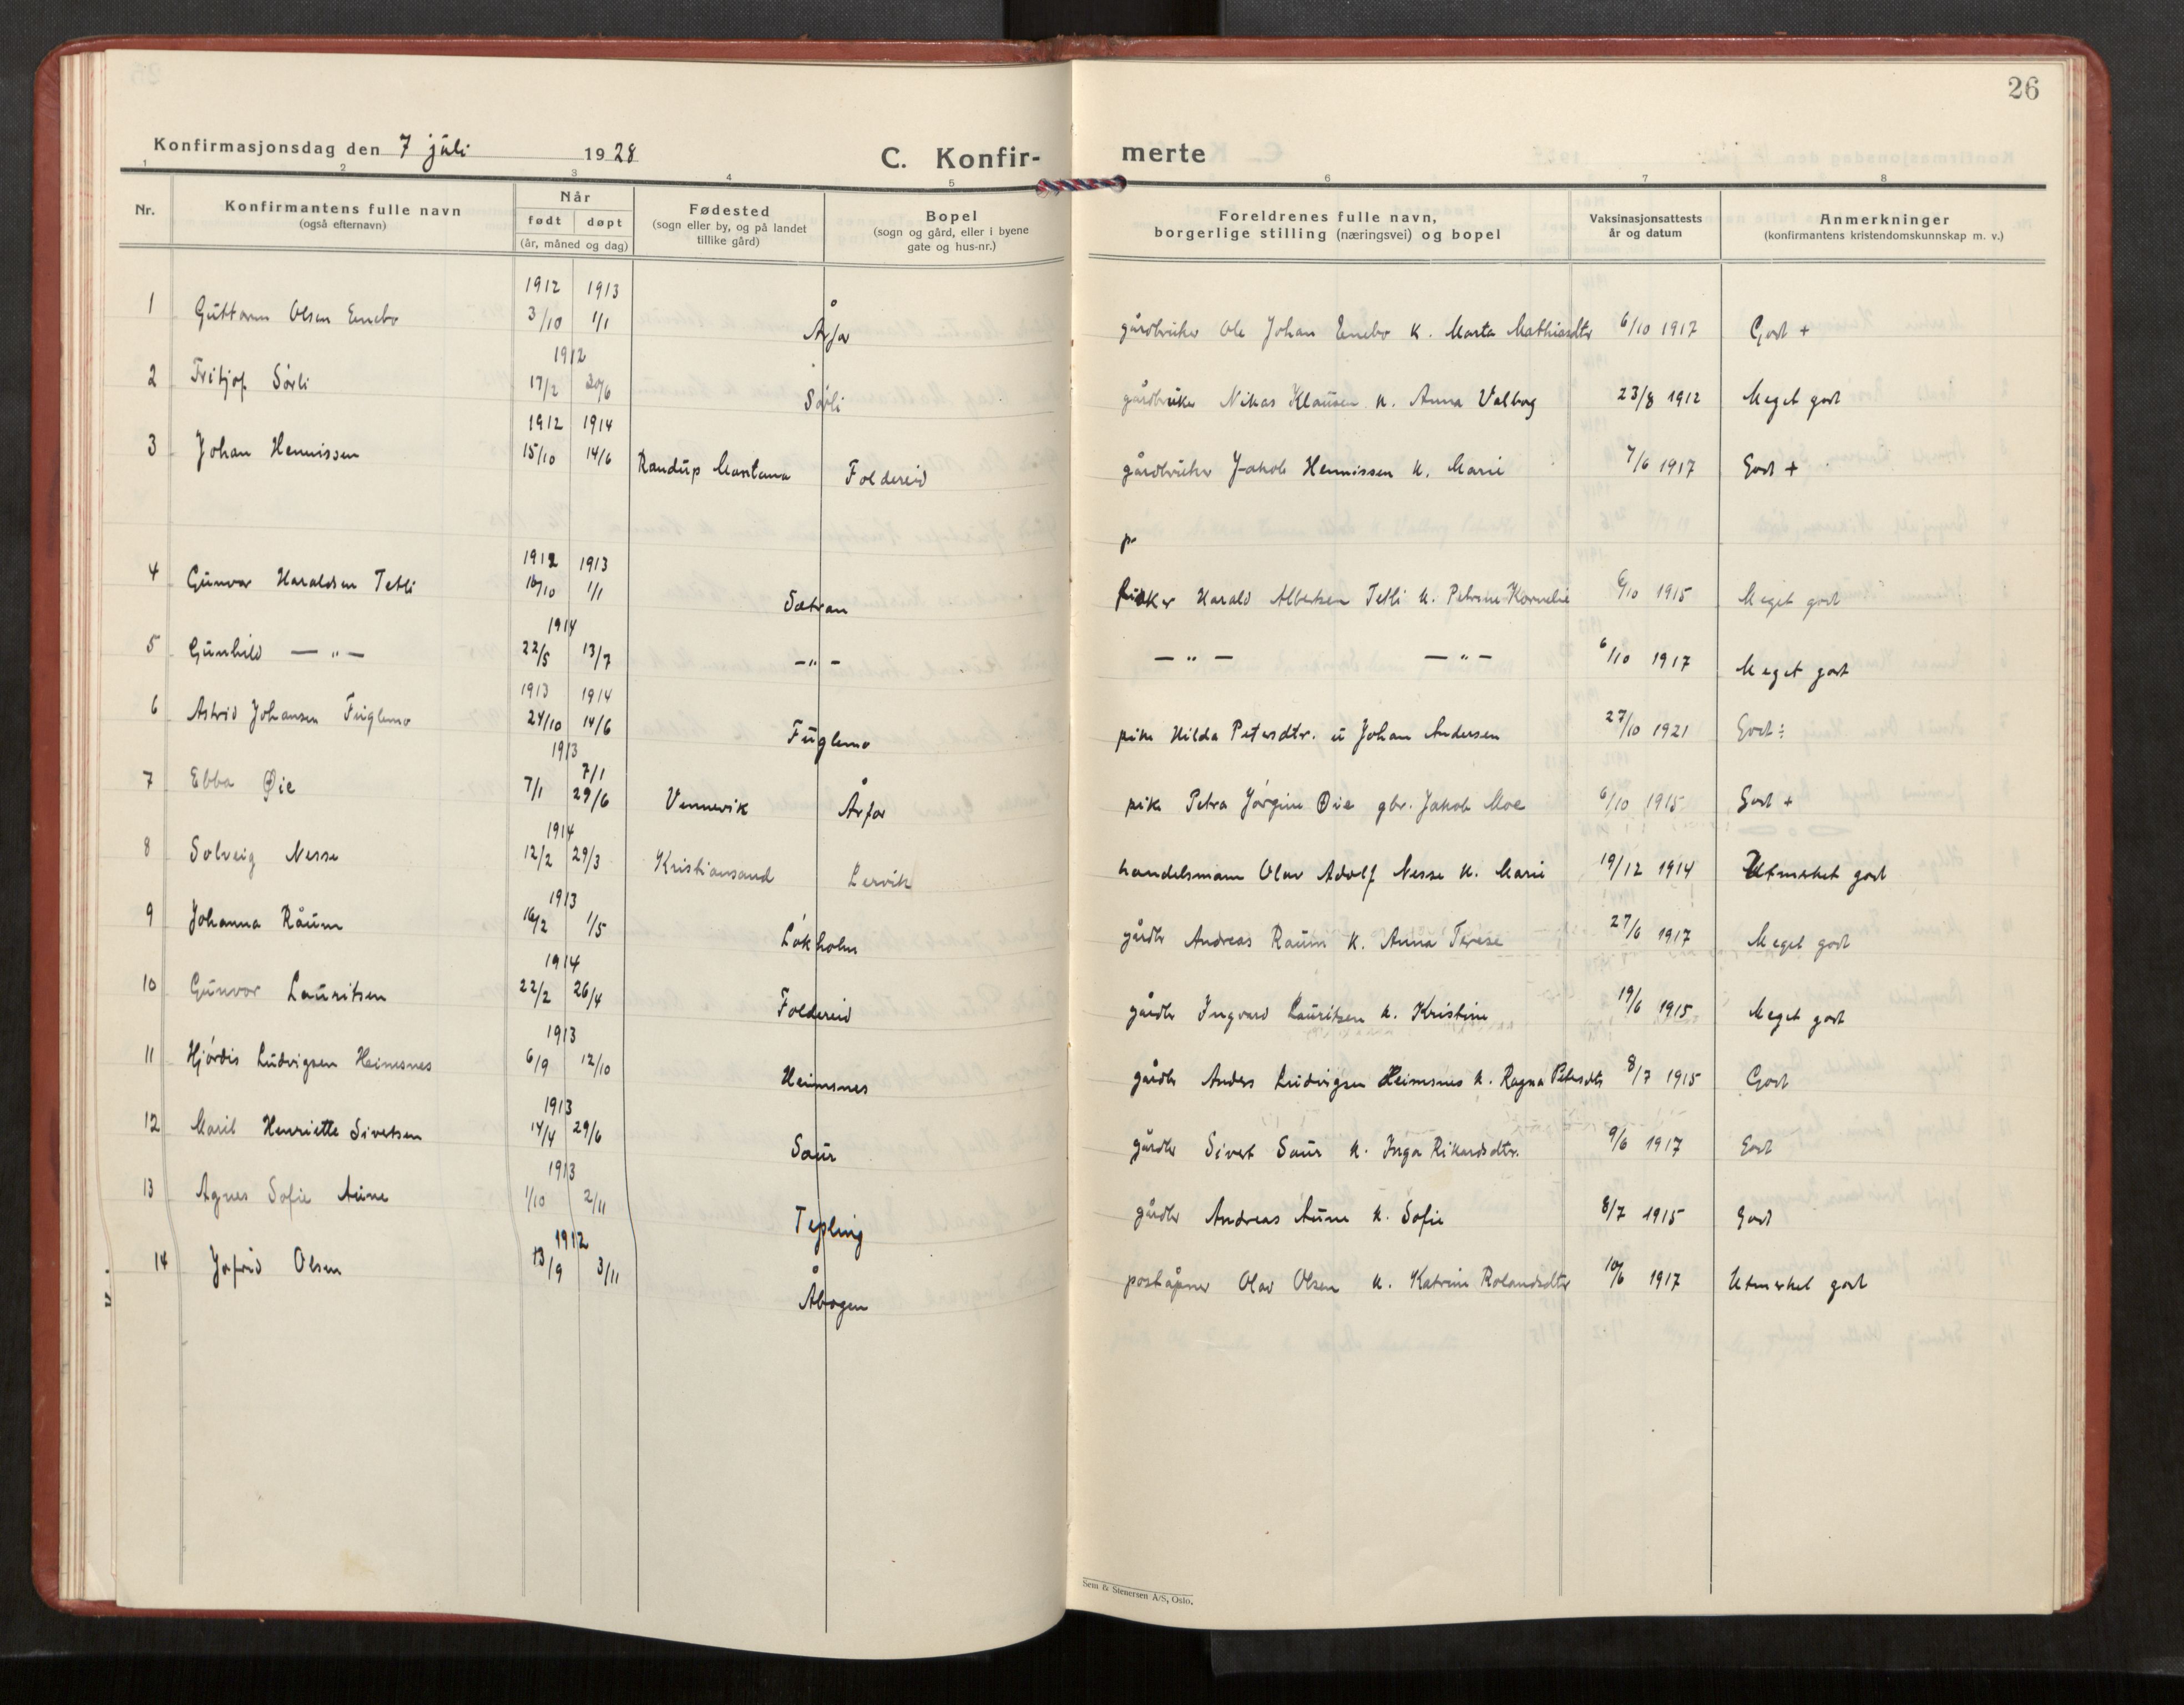 26
Konfirmasjonsdag den 7 juli 1928 C. Konfir- merte
1 2 3 4 5 6 7 8
Nr. Konfirmantens fulle navn (også efternavn) Når født døpt (år, måned og dag) Fødested (sogn eller by, og på landet tillike gård) Bopel (sogn og gård, eller i byene gate og hus-nr.) Foreldrenes fulle navn, borgerlige stilling (næringsvei) og bopel Vaksinasjonsattests år og datum Anmerkninger (konfirmantens kristendomskunnskap m. v.)
1912 1913
1 Guttorm Olsen Enebo 3/10 1/1 Årfor gårdbruker Ole Johan Enebo k. Marta Mathiasdtr 6/10 1917 Godt +
1912
2 Fritjof Sørli 17/2 30/6 Sørli gårdbruker Nikas Klausen k. Anna Valborg 23/8 1912 Meget godt
1912 1914
3 Johan Hennissen 15/10 14/6 Randup Montana Foldereid gårdbruker Jakob Hennissen k. Marie 7/6 1917 Godt +
p
1912 1913
4 Gunvor Haraldsen Tetli 16/10 1/1 Sætran fisker Harald Albertsen Tetli k. Petrine Kornelie 6/10 1915 Meget godt
1914
5 Gunhild — „ — 22/5 13/7 — „ — — „ — — „ — 6/10 1917 Meget godt
1913 1914
6 Astrid Johansen Fuglemo 24/10 14/6 Fuglemo pike Hilda Petersdtr. u Johan Andersen 27/10 1921 Godt ÷
1913
7/1
7 Ebba Øie 7/1 29/6 Vennevik Årfor pike Petra Jørgine Øie gbr. Jakob Moe 6/10 1915 Godt +
1914
8 Solveig Nesse 12/2 29/3 Kristiansand Lervik handelsmann Olav Adolf Nesse k. Marie 19/12 1914 Utmerket godt
1913
9 Johanna Råum 16/2 1/5 Løkholm gårdbr Andreas Raum k. Anna Terese 27/6 1917 Meget godt
1914
10 Gunvor Lauritsen 22/2 26/4 Foldereid gårdbr Ingvard Lauritsen k. Kristine 19/6 1915 Meget godt
1913
11 Hjørdis Ludvigsen Heimsnes 6/9 12/10 Heimsnes gårdbr Anders Ludvigsen Heimsnes k. Ragna Petersdtr 8/7 1915 Godt
1913
12 Marit Henriette Sivertsen 14/4 29/6 Saur gårdbr Sivert Saur k. Inga Rikardsdtr. 9/6 1917 Godt
1913
13 Agnes Sofie Aune 1/10 2/11 Tepling gårdbr Andreas Aune k. Sofie 8/7 1915 Godt
1912
14 Jofrid Olsen 13/9 3/11 Åbogen poståpner Olav Olsen k. Katrine Rolandsdtr 10/6 1917 Utmerket godt
Sem & Stenersen A/S, Oslo.